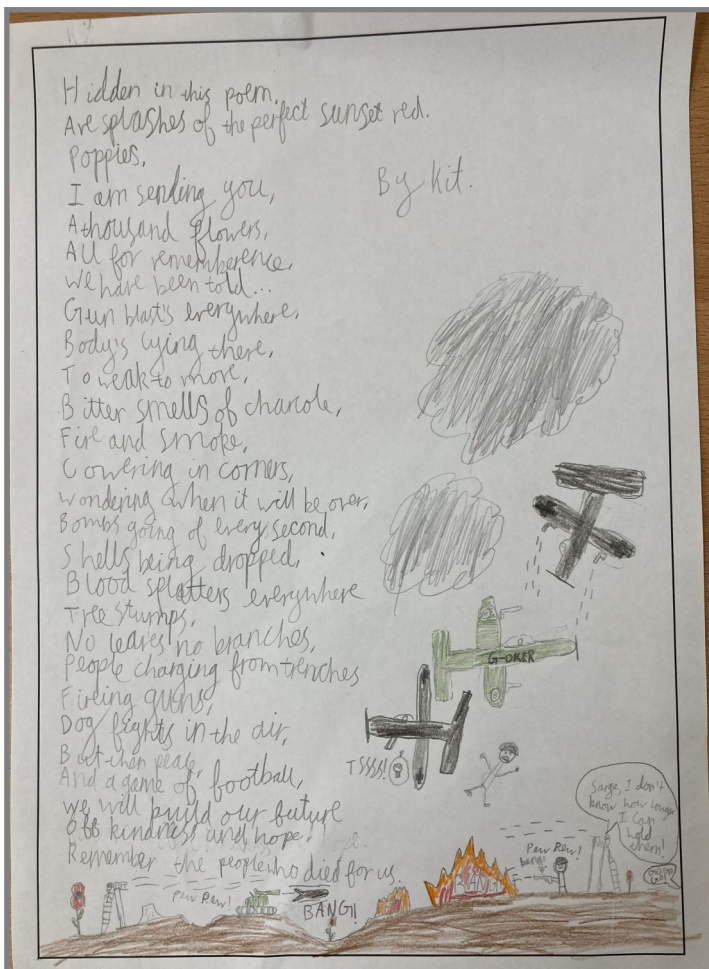 Kit
Hidden in this poem,
Are splashes of the perfect sunset red.
Poppies,
By Kit.
I am sending you,
A thousand flowers,
All for rememberence,
We have been told...
Gun blast's everywhere,
Body's lying there,
To weak to move,
Bitter smells of charcole,
Fire and smoke,
Cowering in corners,
wondering when it will be over,
Bombs going of every second,
Shells being dropped,
Blood splatters everywhere
Tree stumps,
No leaves no branches,
People charging from trenches
Fireing guns,
Dog fights in the air,
But then peace,
And a game of football,
we will build our future
Off kindness and hope.
Remember the people who died for us.
G-DKER
TSSSS!
Sarge, I don't
know how longer
I can
hold
them!
Pew Pew!
bang!
BANG!
Pew Pew!
BANG!